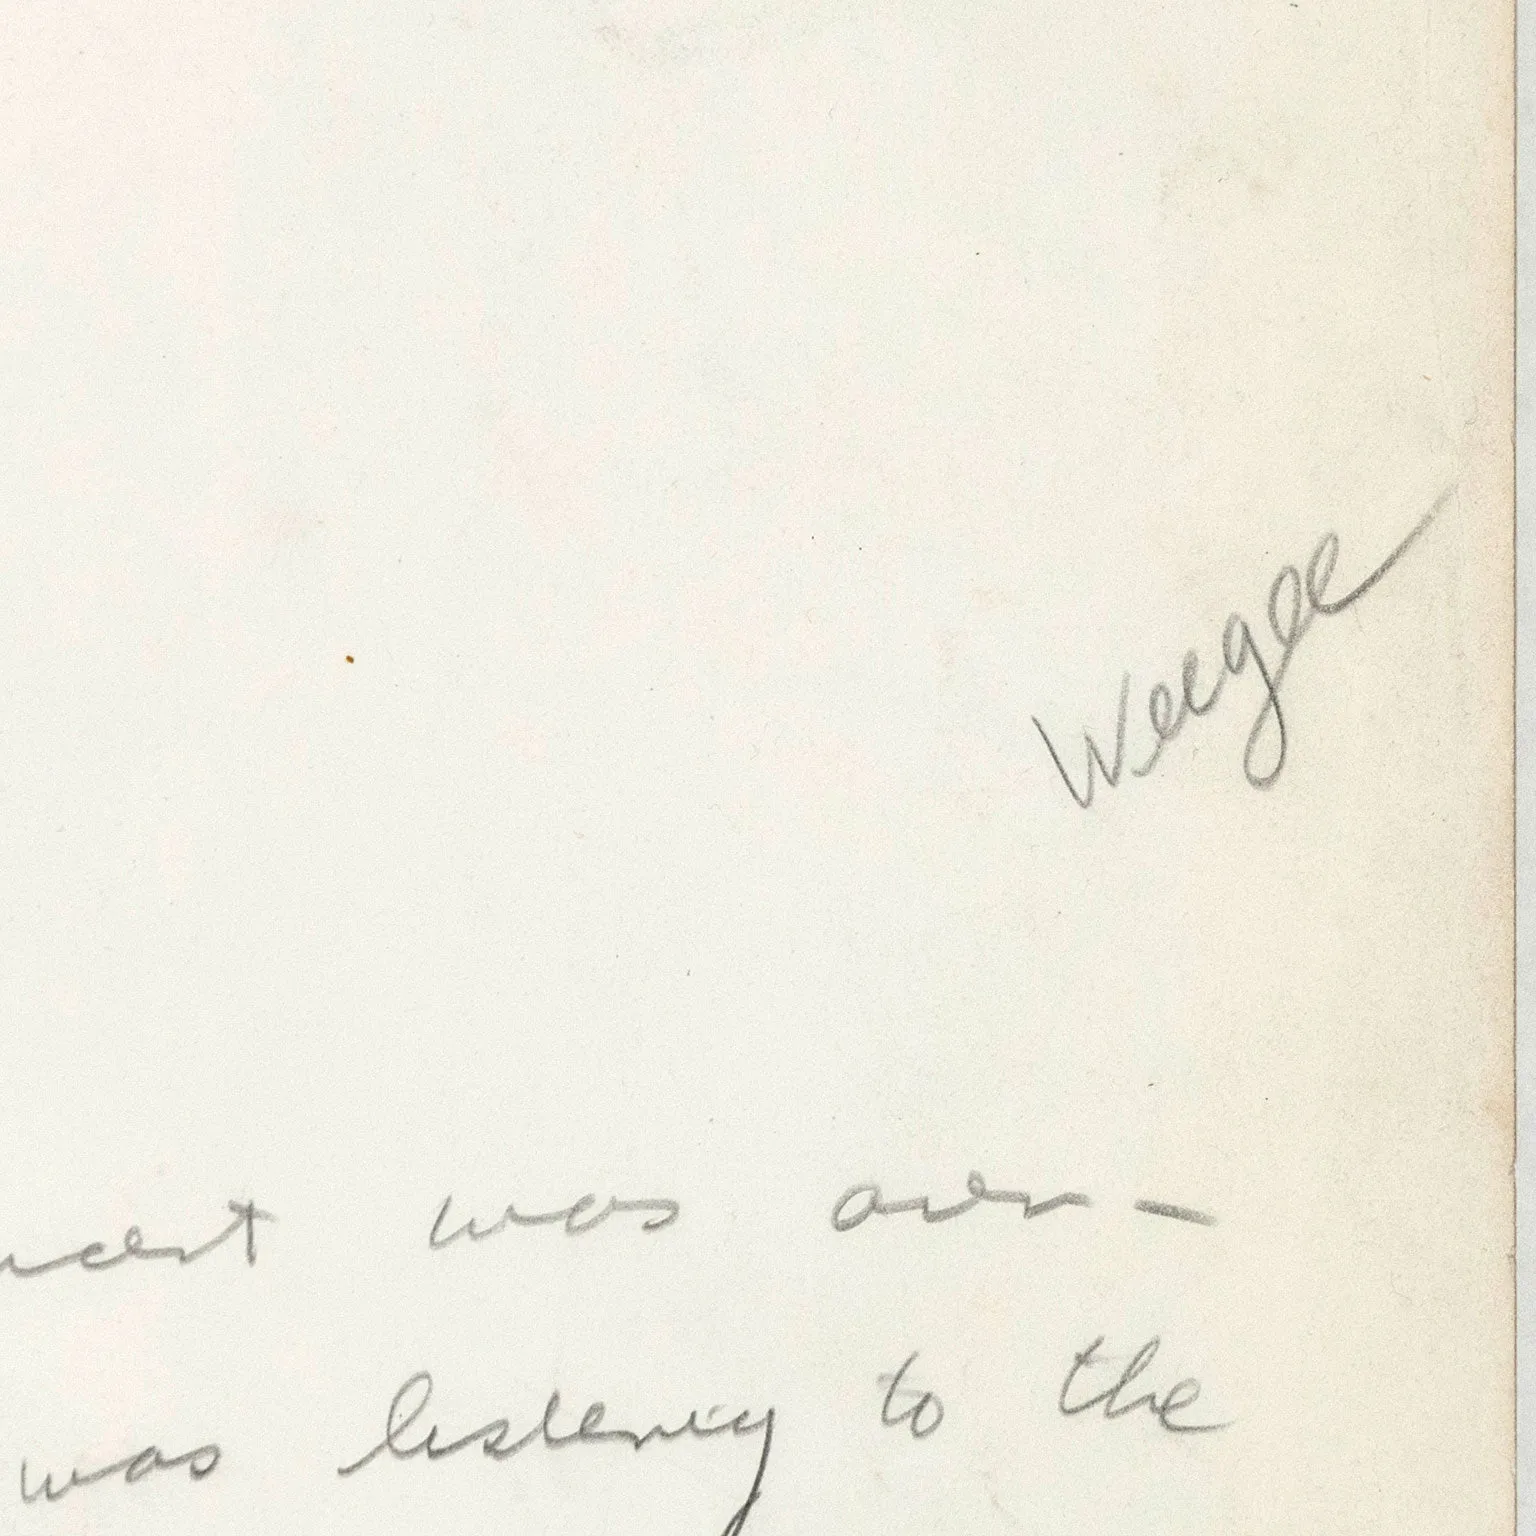 Weegee
was over —
was listening to the